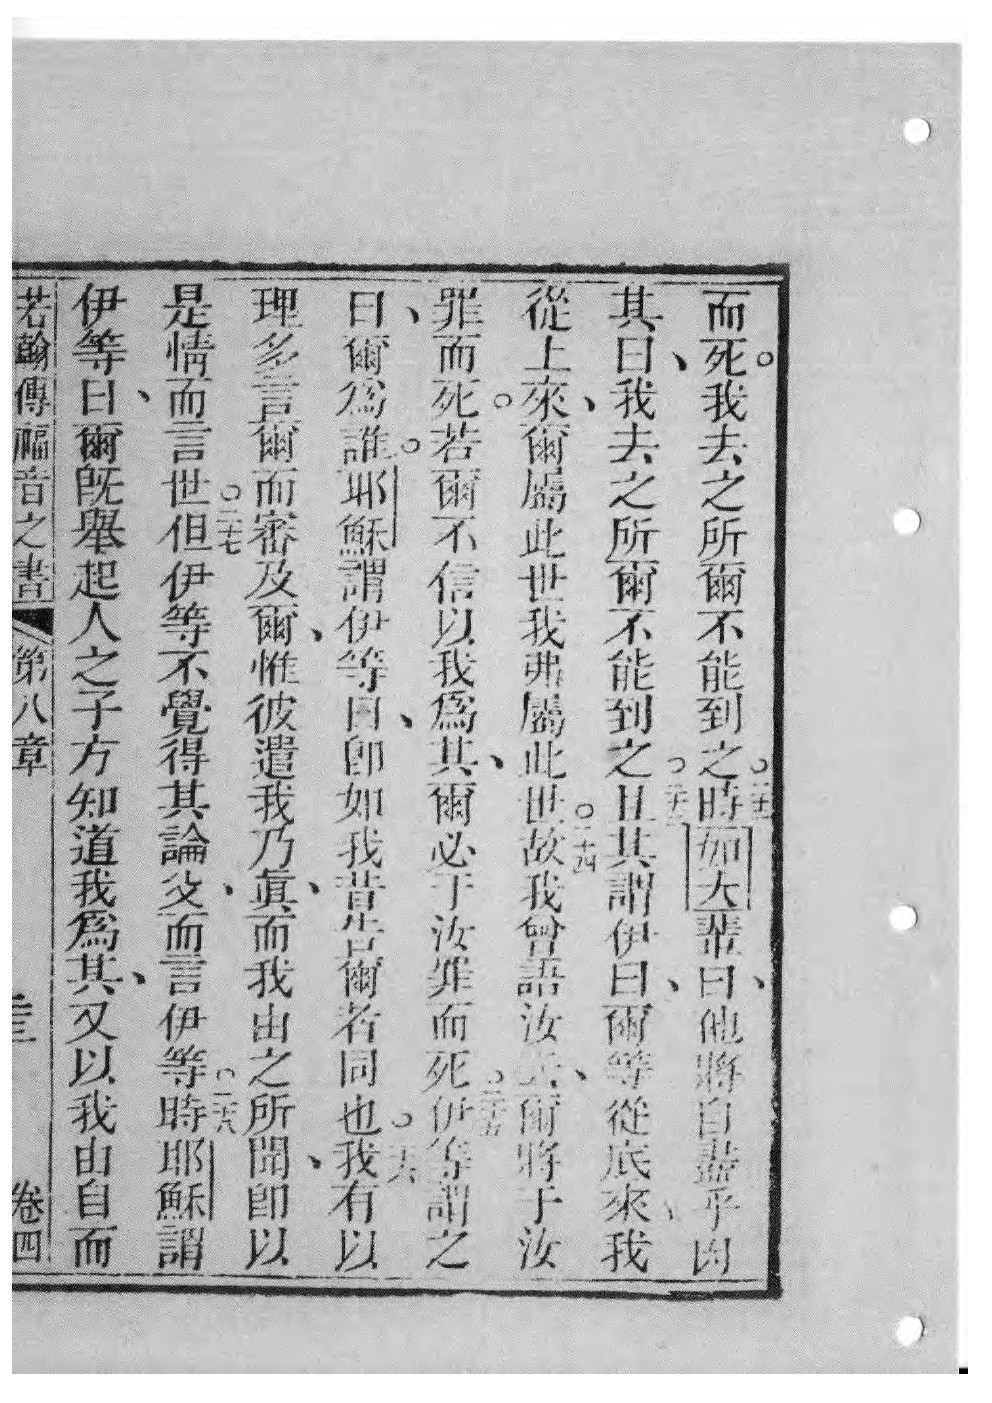 而死。我去之所爾不能到之。二十二時如大輩曰、他將自盡乎因
其曰、我去之所爾不能到之。二十三且其謂伊曰、爾等從底來我
從上來、爾屬此世我弗屬此世。二十四故我曾語汝云、爾將于汝
罪而死。若爾不信以我為其、爾必于汝罪而死。二十五伊等謂之
曰、爾為誰。耶穌謂伊等曰、即如我昔告爾者同也。二十六我有以
理多言爾而審及爾、惟彼遣我乃真、而我由之所聞、即以
是情而言世。二十七但伊等不覺得其論父、而言伊等。二十八時耶穌謂
伊等曰、爾既舉起人之子方知道我為其、又以我由自而
若翰傳福音之書 第八章 卷四